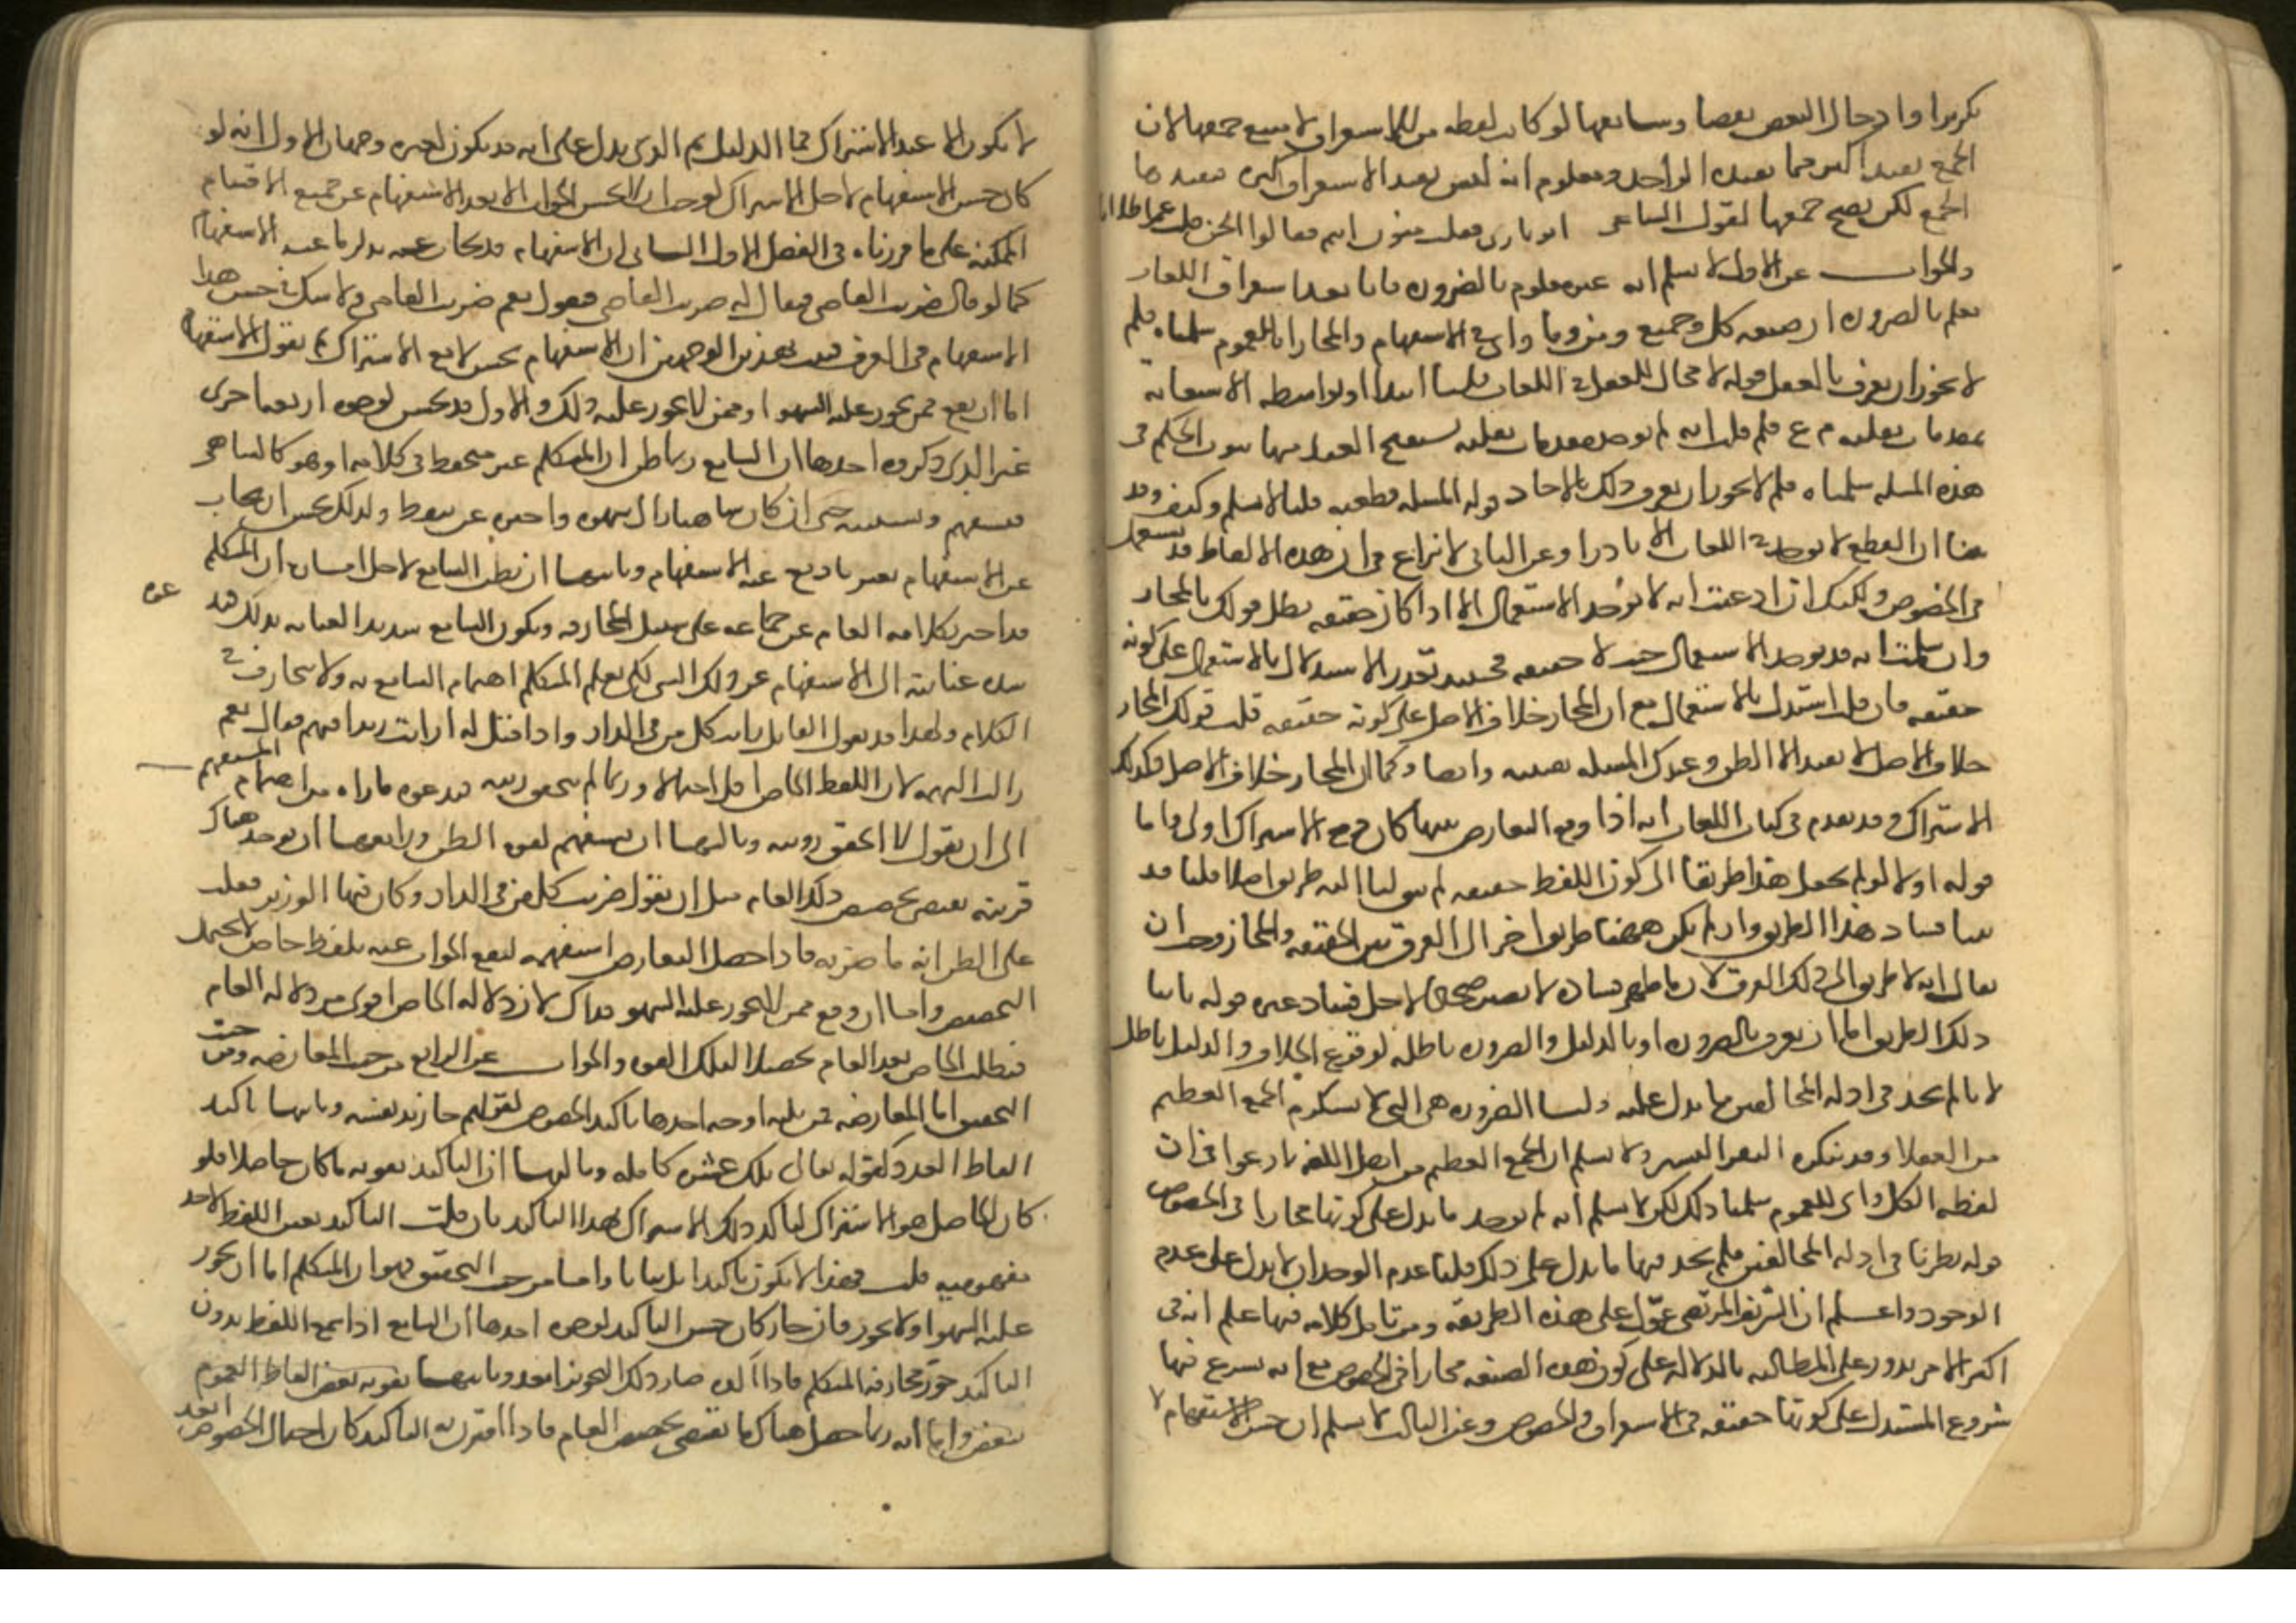 تكريرا وادخال البعض نقضا وسابعها لو كانت لفظه من للاستغراق لامتنع جمعها لان
الجمع يفيد اكثر مما يفيده الواحد ومعلوم انه ليس بعد الاستغراق كثره فيفيدها
الجمع لكن يصح جمعها لقول الشاعر اتوا ناري فقلت منون انتم فقالوا الجن قلت عموا ظلاما
والجواب عن الاول لا نسلم انه غير معلوم بالضروره فانا بعد استقراء اللغات
نعلم بالضروره ان صيغه كل وجميع ومن وما واي في الاستفهام والمجازاه للعموم سلمناه فلم
لا يجوز ان يعرف بالعقل قوله لا مجال للعقل في اللغات قلنا ابتداء او بواسطه الاستعانه
بمقدمات نقليه م ع فلم قلت انه لم توجد مقدمات نقليه يستنتج العقل منها ثبوت الحكم في
هذه المسله سلمناه فلم لا يجوز ان يعرف ذلك بالاحاد قوله المسله قطعيه قلنا لا نسلم وكيف وقد
بينا ان القطع لا يوجد في اللغات الا نادرا وعن الثاني لا نزاع في ان هذه الالفاظ قد تستعمل
في الخصوص ولكنك ان ادعيت انه لا يوجد الاستعمال الا اذا كان حقيقه بطل قولك بالمجاز
وان سلمت انه قد يوجد الاستعمال حيث لا حقيقه فحينئذ تعذر الاستدلال بالاستعمال على كونه
حقيقه فان قلت استدل بالاستعمال مع ان المجاز خلاف الاصل على كونه حقيقه قلت قولك المجاز
خلاف الاصل لا يفيد الا الظن وعندك المسله يقينيه وايضا وكما ان المجاز خلاف الاصل فكذلك
الاشتراك وقد تقدم في كتاب اللغات انه اذا وقع التعارض بينهما كان دفع الاشتراك اولى واما
قوله اولا لو لم يجعل هذا طريقا الى كون اللفظ حقيقه لم يبق لنا اليه طريق اصلا قلنا قد
بينا فساد هذا الطريق وان لم يكن ههنا طريق اخر الى الفرق بين الحقيقه والمجاز وجب ان
يقال انه لا طريق الى ذلك الفرق لان ما ظهر فساده لا يصير صحيحا لاجل فساد غيره قوله ثانيا
ذلك الطريق اما ان يعرف بالضروره او بالدليل والضروره باطله لوقوع الخلاف والدليل باطل
لانا لم نجد في ادله المخالفين ما يدل عليه قلنا الضروره هي التي لا ينكرها الجمع العظيم
من العقلا وقد ينكره النفر اليسير ولا نسلم ان الجمع العظيم من اهل اللغه نازعوا في ان
لفظه الكل واي للعموم سلمنا ذلك لكن لا نسلم انه لم يوجد ما يدل على كونها مجازا في الخصوص
قوله نظرنا في ادله المخالفين فلم نجد فيها ما يدل على ذلك قلنا عدم الوجدان لا يدل على عدم
الوجود واعلم ان الشريف المرتضى عول على هذه الطريقه ومن تامل كلامه فيها علم انه في
اكثر الامر يدور على المطالبه بالدلاله على كون هذه الصيغه مجازا في الخصوص مع انه يسرع فيها
شروع المستدل على كونها حقيقه في الاستغراق والخصوص وعن الثالث لا نسلم ان حسن الاستفهام لا
لا يكون الا عند الاشتراك فما الدليل ثم الذي يدل على انه قد يكون لغيره وجهان الاول انه لو
كان حسن الاستفهام لاجل الاشتراك لوجب ان لا يحسن الجواب الا بعد الاستفهام عن جميع الاقسام
الممكنه على ما قررناه في الفصل الاول الثاني ان الاستفهام قد يجاب عنه بذكر ما عنه الاستفهام
كما لو قال ضربت القاضي فيقال له ضربت القاضي فيقول نعم ضربت القاضي ولا شك في حسن هذا
الاستفهام في العرف فثبت بهذين الوجهين ان الاستفهام يحسن لا مع الاشتراك ثم نقول الاستفهام
اما ان يقع ممن يجوز عليه السهو او ممن لا يجوز عليه ذلك والاول قد يحسن لوجوه اربعه اخرى
غير الذي ذكروه احدها ان السامع ربما ظن ان المتكلم غير متحفظ في كلامه او هو كالساهي
فيستفهم ويستثبته حتى ان كان ساهيا زال سهوه واخبره عن تيقظ ولذلك يحسن ان يجاب
عن الاستفهام بعين ما وقع عنه الاستفهام وثانيها ان يظن السامع لاجل امارات ان المتكلم
قد اخبر بكلامه العام عن جماعه على سبيل المجازفه ويكون السامع شديد العنايه بذلك فتد
عوه
شده عنايته الى الاستفهام عن ذلك الشي لكي يعلم المتكلم اهتمام السامع به ولا يجازف في
الكلام ولهذا قد يقول القائل رايت كل من في الدار واذا قيل له ارايت زيدا فيهم فقال نعم
زالت التهمه لان اللفظ الخاص اقل احتمالا وربما لم يتحقق رؤيته فيدعوه ما راه من اهتمام المستفهم
الى ان يقول لا اتحقق رؤيته وثالثها ان يستفهم لقوه الظن ورابعها ان يوجد هناك
قرينه تقتضي تخصيص ذلك العام مثل ان يقول ضربت كل من في الدار وكان فيها الوزير فغلب
على الظن انه ما ضربه فاذا حصل التعارض استفهمه ليقع الجواب عنه بلفظ خاص لا يحتمل
التخصيص واما ان وقع ممن لا يجوز عليه السهو فذاك لان دلاله الخاص اقوى من دلاله العام
فيطلب الخاص بعد العام تحصيلا لتلك القوه والجواب عن الرابع من حيث المعارضه ومن حيث
التحقيق اما المعارضه فمن ثلثه اوجه احدها تاكيد الخصوص لقولهم جا زيد نفسه وثانيها تاكيد
الفاظ العدد كقوله تعالى تلك عشره كامله وثالثها ان التاكيد تقويه ما كان حاصلا فلو
كان الحاصل هو الاشتراك لتاكد ذلك الاشتراك بهذا التاكيد فان قلت التاكيد يعين اللفظ لاحد
مفهوميه قلت فهذا لا يكون تاكيدا بل بيانا واما من حيث التحقيق فهو ان المتكلم اما ان يجوز
عليه السهو او لا يجوز فان جاز كان حسن التاكيد لوجوه احدها ان السامع اذا سمع اللفظ بدون
التاكيد جوز مجازفه المتكلم فاذا اكده صار ذلك التجويز ابعد وثانيها تقويه بعض الفاظ العموم
ببعض وثالثها انه ربما حصل هناك ما يقتضي تخصيص العام فاذا اقترن به التاكيد كان احتمال الخصوص ابعد